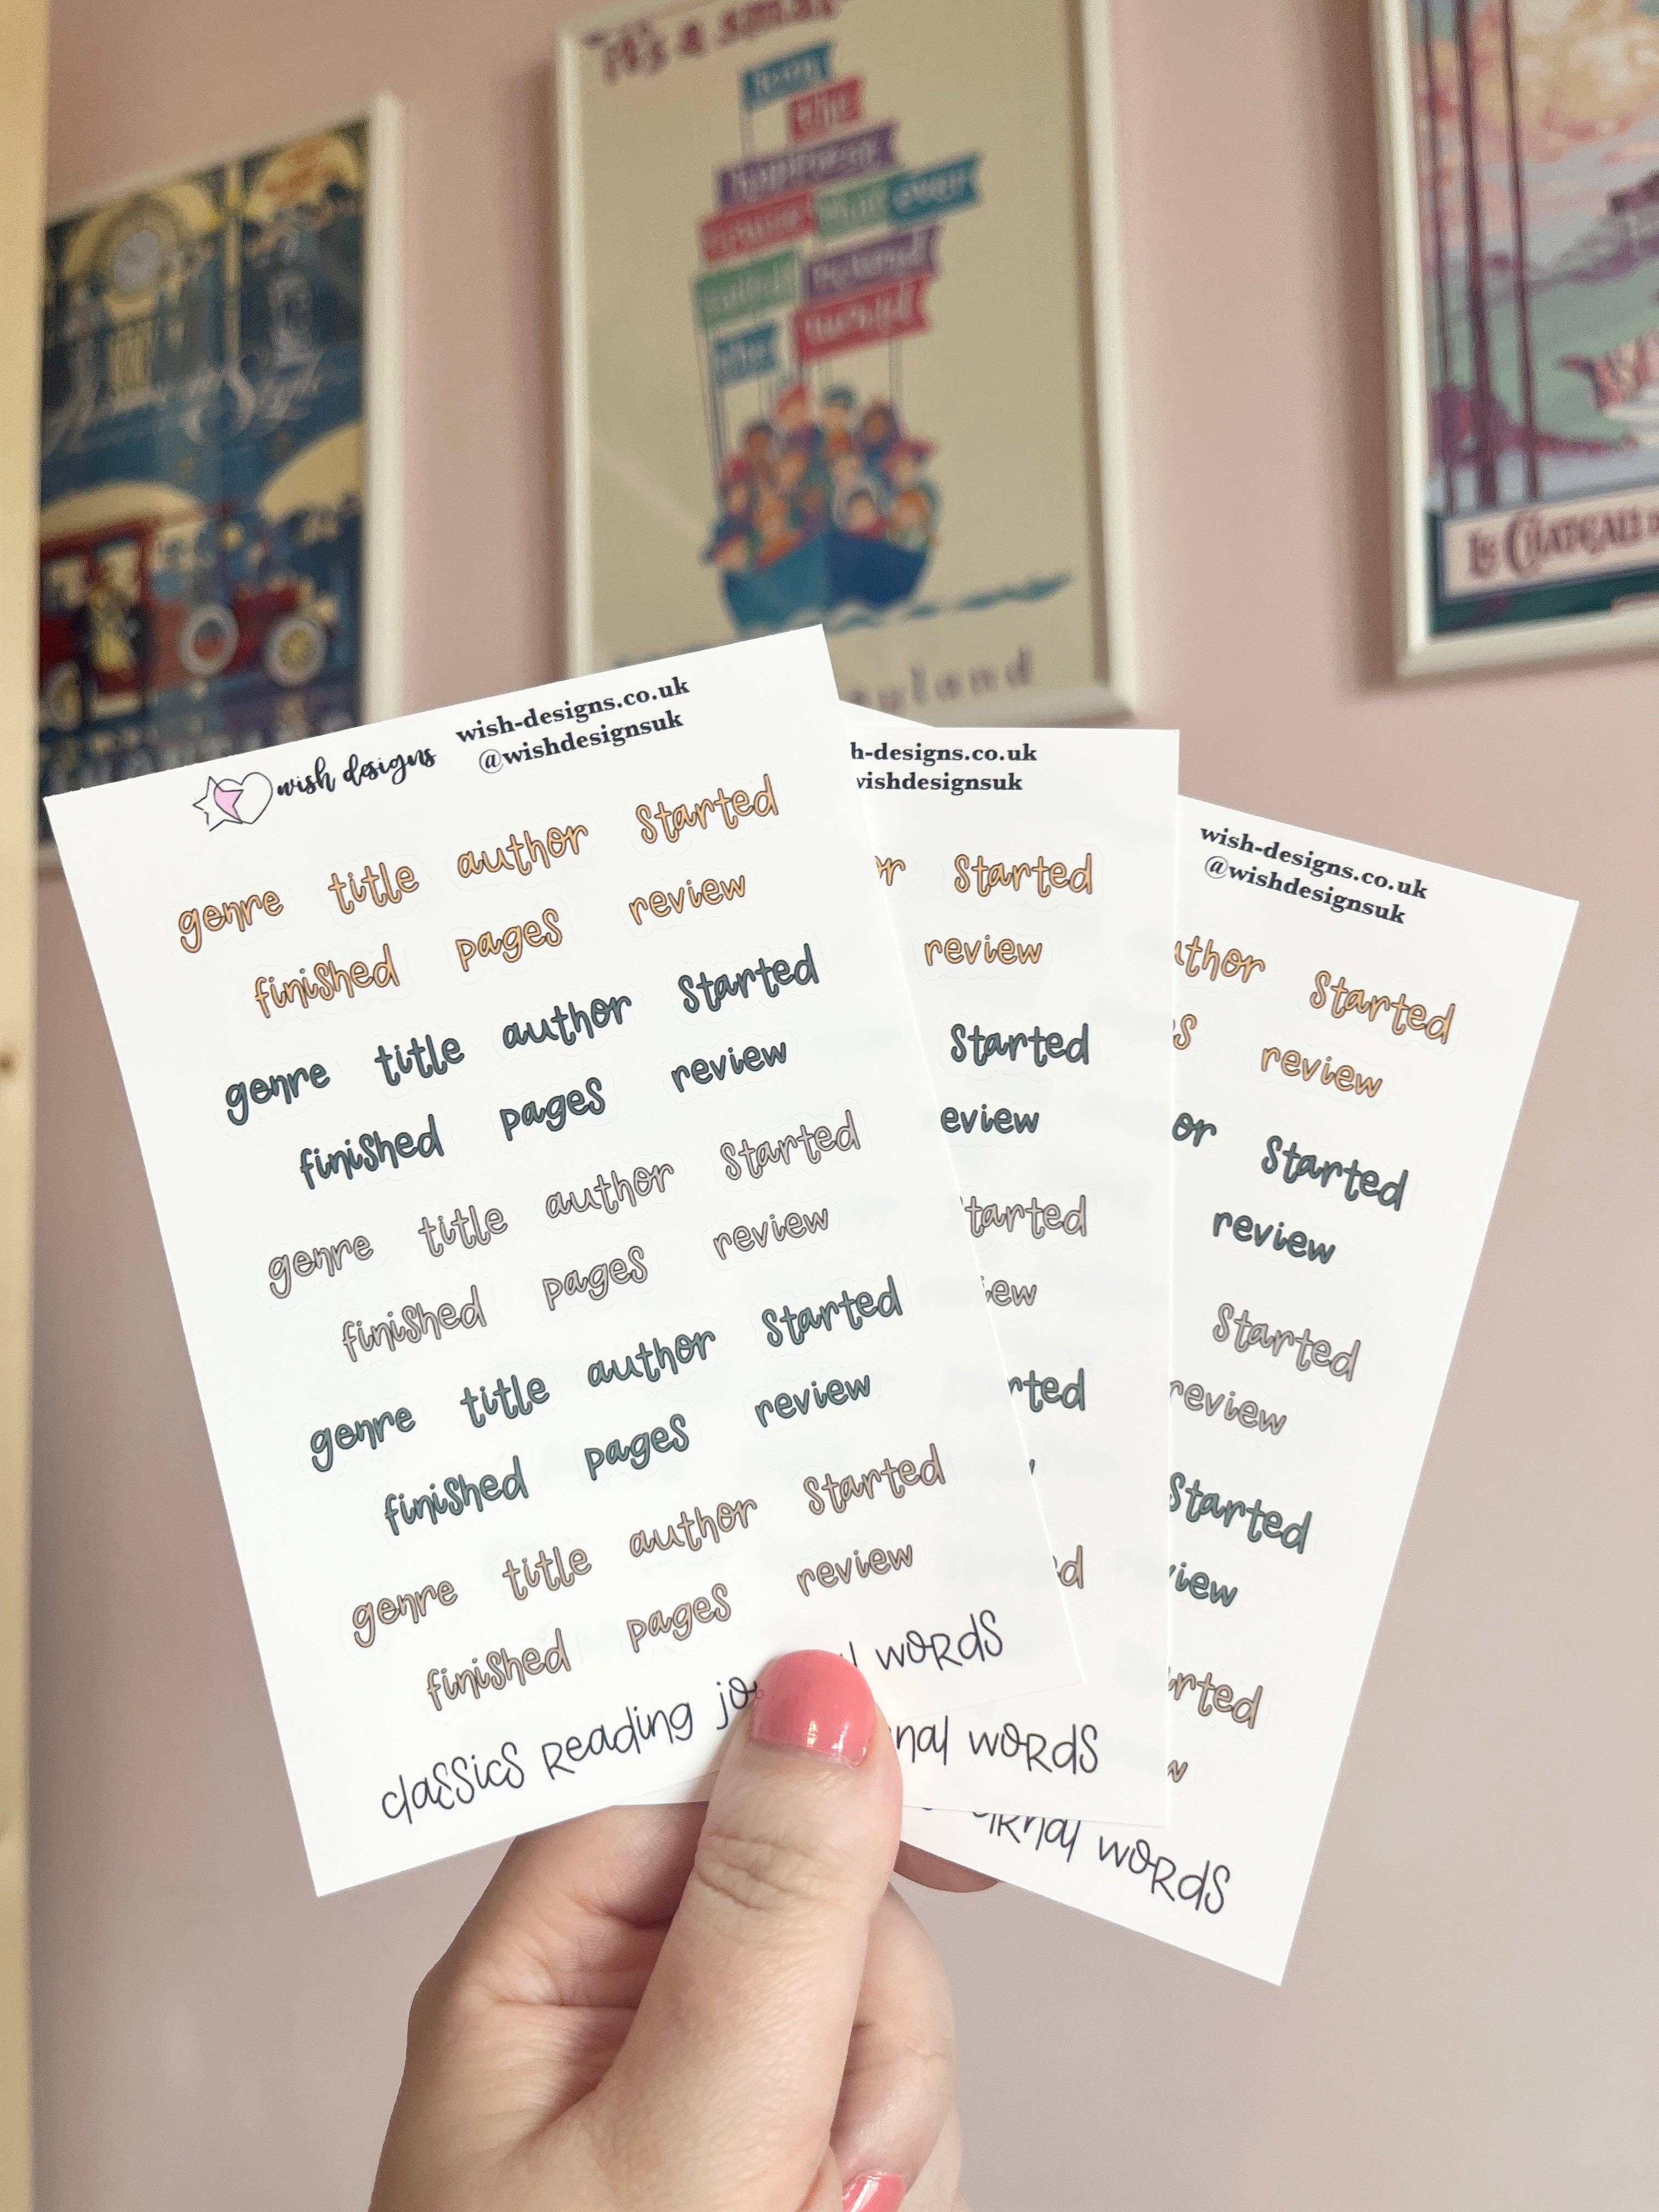 it's a small
the
happiest
cruise that over
sailed around
the world
Le Château
wish designs
wish-designs.co.uk
@wishdesignsuk
genre title author Started
finished pages review
genre title author Started
finished pages review
genre title author Started
finished pages review
genre title author Started
finished pages review
genre title author Started
finished pages review
classics Reading jo l words
h-designs.co.uk
vishdesignsuk
or Started
review
Started
eview
tarted
iew
rted
d
nal words
wish-designs.co.uk
@wishdesignsuk
uthor Started
s review
or Started
review
Started
review
Started
view
rted
w
urnal words